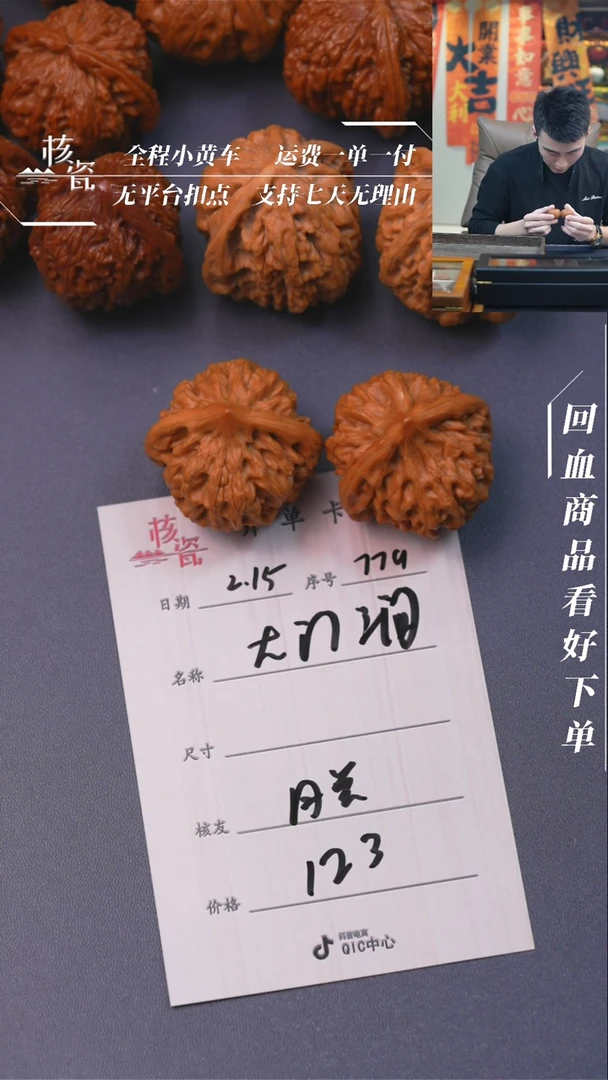 核瓷
全程小黄车 运费一单一付
无平台扣点 支持七天无理由
開業
大吉
大利
事事如意
回血商品看好下单
核瓷
单卡
日期 2.15 序号 779
名称 大门
尺寸
核友 月关
价格 123
抖音电商
QIC中心